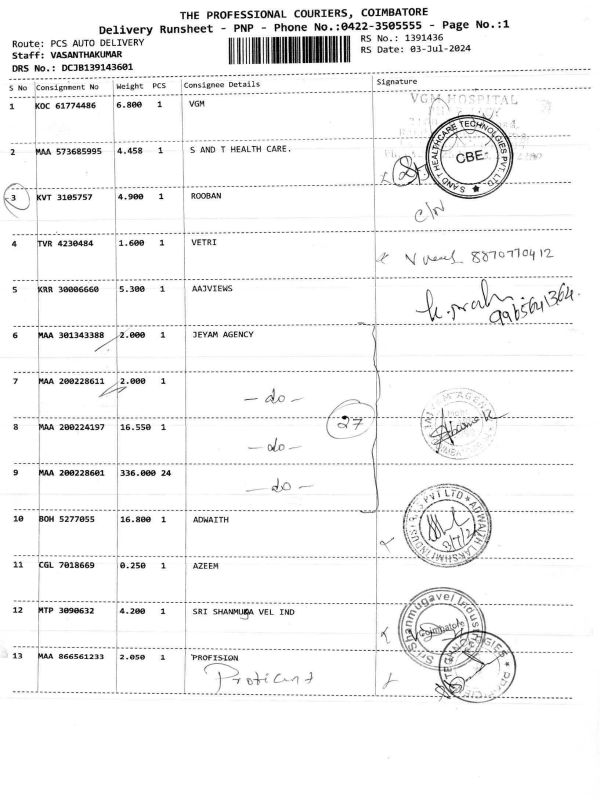 THE PROFESSIONAL COURIERS, COIMBATORE
Delivery Runsheet - PNP - Phone No.:0422-3505555 - Page No.:1
Route: PCS AUTO DELIVERY RS No.: 1391436
Staff: VASANTHAKUMAR RS Date: 03-Jul-2024
DRS No.: DCJB139143601
S No Consignment No Weight PCS Consignee Details Signature
1 KOC 61774486 6.800 1 VGM
VGM HOSPITAL
2 MAA 573685995 4.458 1 S AND T HEALTH CARE.
S AND T HEALTHCARE TECHNOLGIES PVT LTD. CBE-
3 KVT 3105757 4.900 1 ROOBAN
4 TVR 4230484 1.600 1 VETRI
8870770412
5 KRR 30006660 5.300 1 AAJVIEWS
9965641364
6 MAA 301343388 2.000 1 JEYAM AGENCY
7 MAA 200228611 2.000 1
- do -
27
8 MAA 200224197 16.550 1
- do -
9 MAA 200228601 336.000 24
- do -
10 BOH 5277055 16.800 1 ADWAITH
ADWAITH LAKSHMI INDUSTRIES PVT LTD
11 CGL 7018669 0.250 1 AZEEM
12 MTP 3090632 4.200 1 SRI SHANMUGA VEL IND
Sri Shanmugavel Industries Coimbatore
13 MAA 866561233 2.050 1 PROFISION